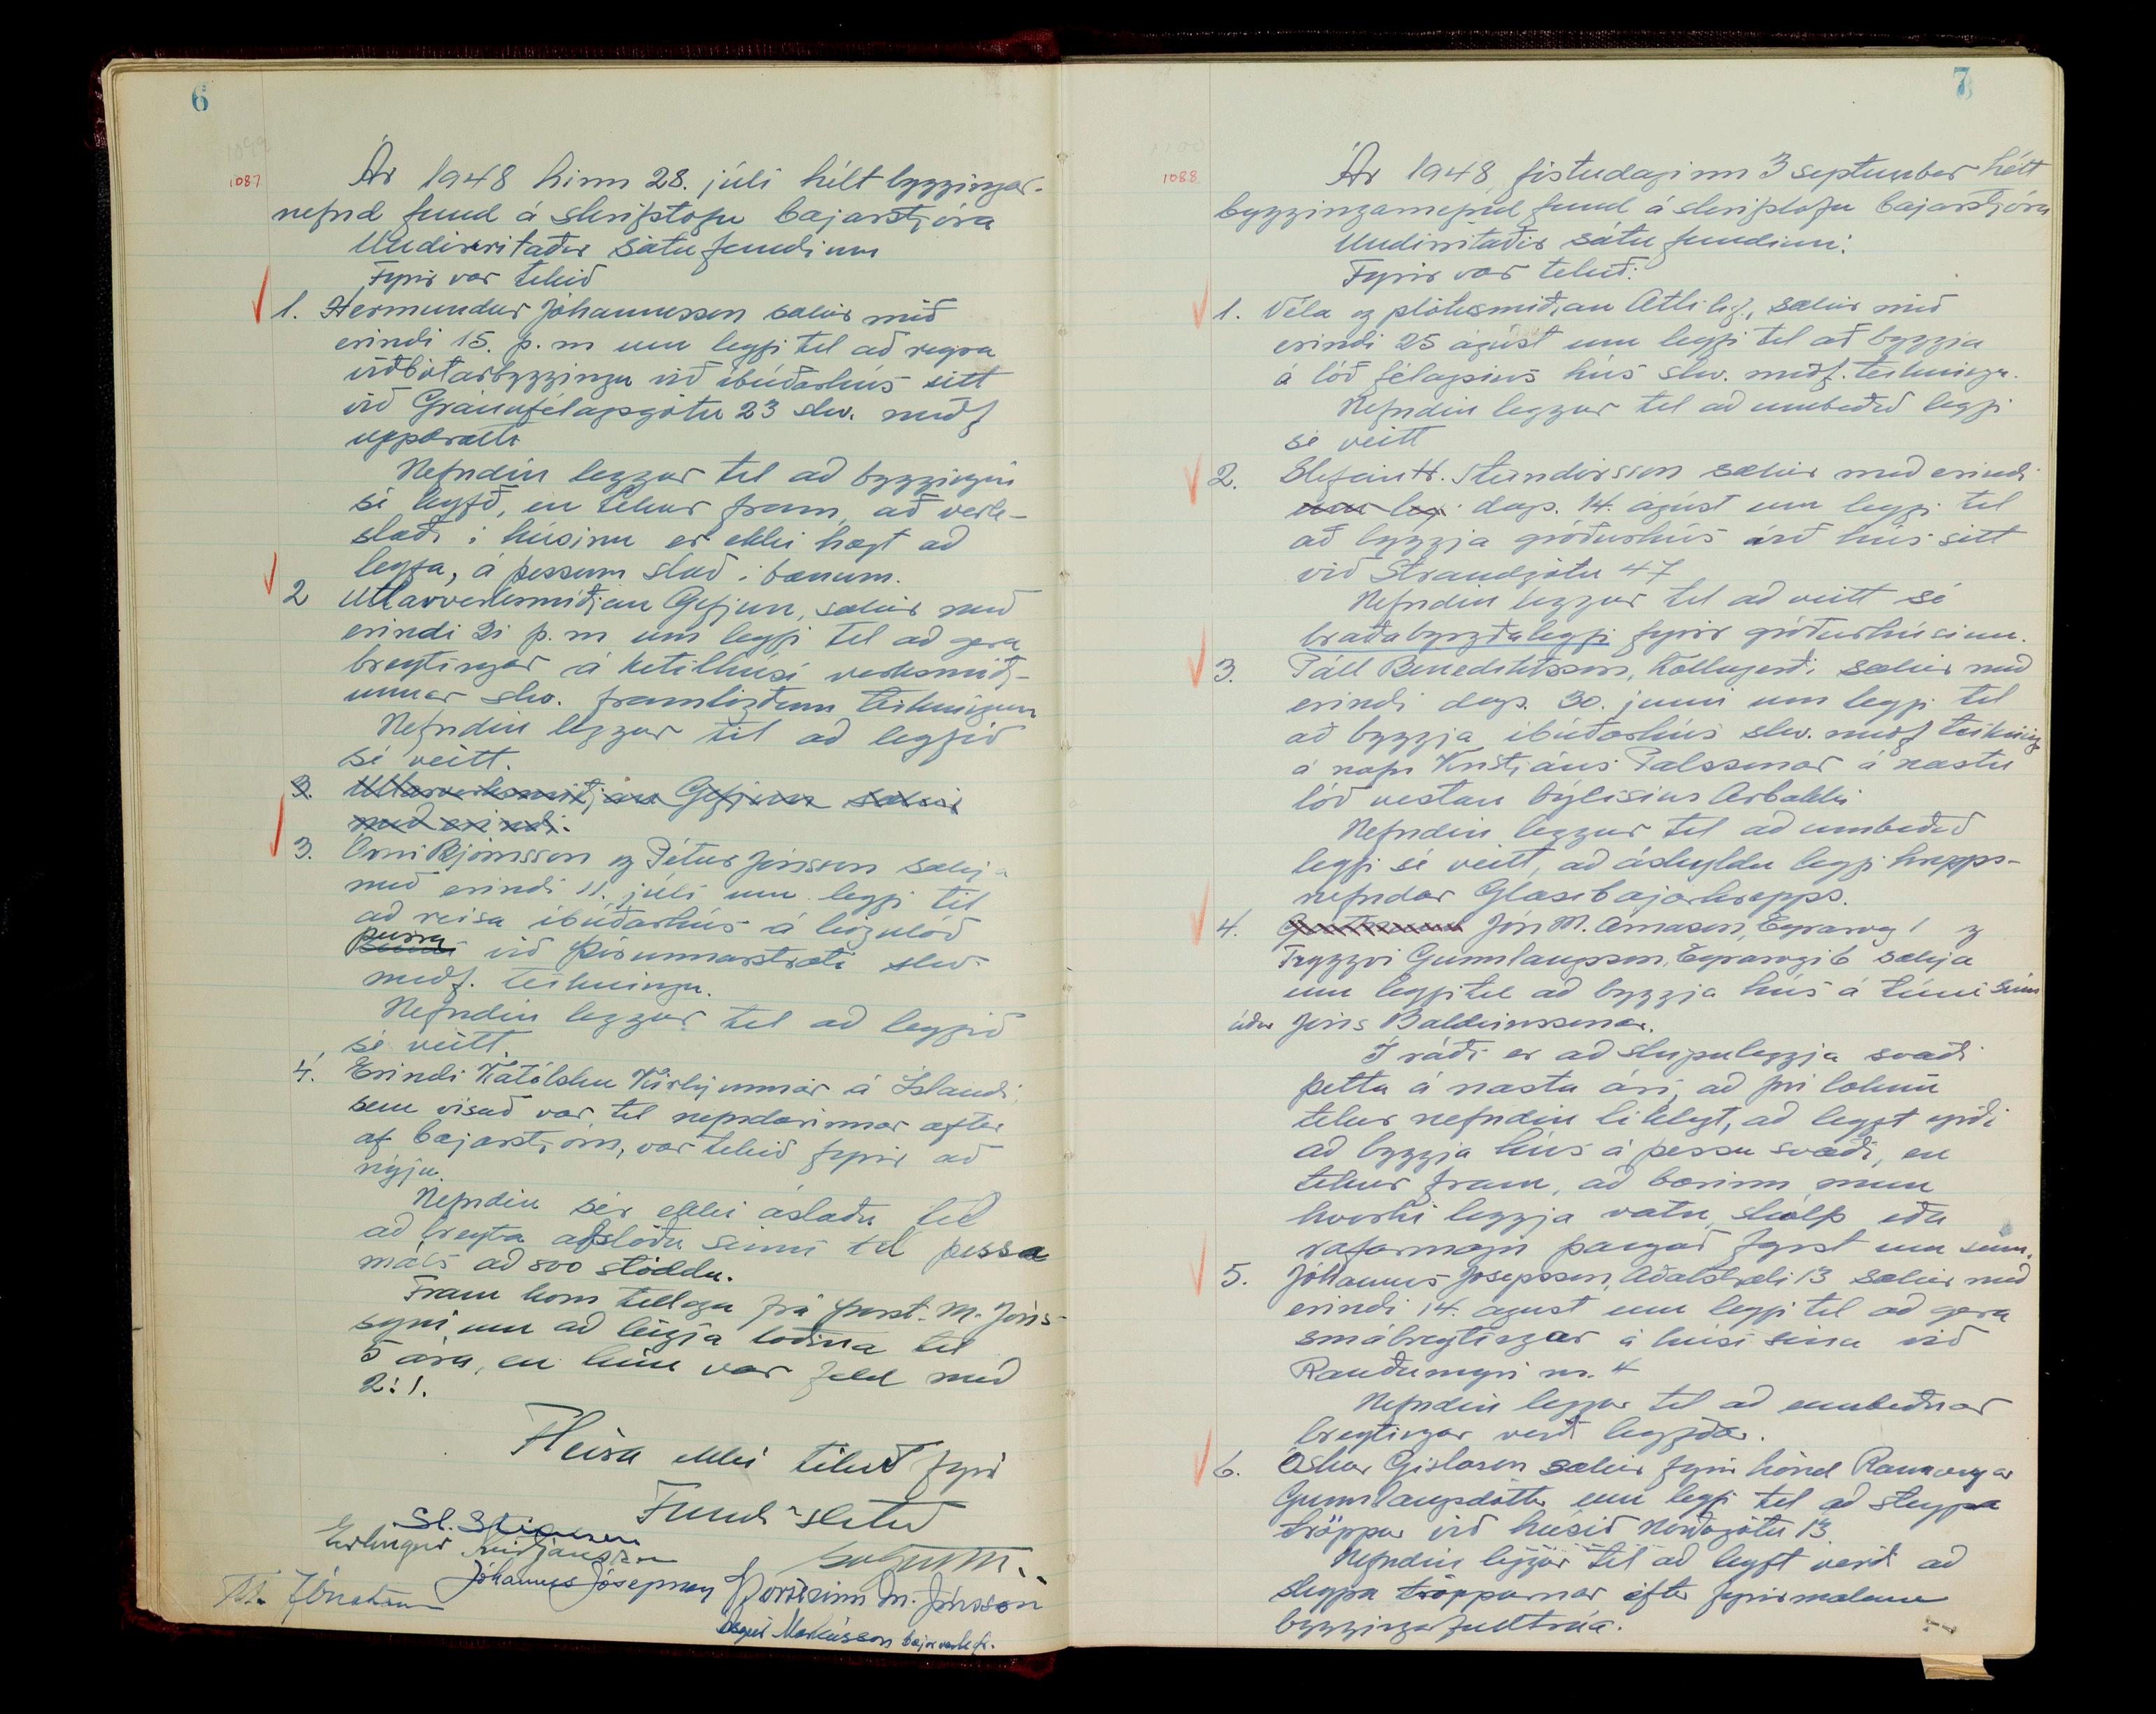 6
1099
1087
Ár 1948 hinn 28. júli hélt byggingar-
nefnd fund á skrifstofu bæjarstjóra
Undirritaðir sátu fundinn
Fyrir var tekið
1. Hermundur Jóhannesson sækir með
erindi 15. þ.m um leyfi til að
viðbótarbyggingu við íbúðarhús sitt
við Gránufélagsgötu 23 skv. meðf
uppdrætti
Nefndin leggur til að byggingin
sé leyfð, en tekur fram, að verk-
stæði í húsinu er ekki hægt að
leyfa, á þessum stað í bænum.
2 Ullarverksmiðjan Gefjun, sækir með
erindi 21 þ.m um leyfi til að gera
breytingar á ketilhúsi verksmiðj-
unnar skv. framlögðum teikningum
Nefndin leggur til að leyfið
sé veitt.
3. Ullarverksmiðjan Gefjun sækir
með erindi.
3. Árni Björnsson og Pétur Jónsson sækja
með erindi 11. júlí um leyfi til
að reisa íbúðarhús á leigulóð
þeirra
við Þórunnarstræti skv.
meðf. teikningu.
Nefndin leggur til að leyfið
sé veitt.
4. Erindi Katólsku Kirkjunnar á Íslandi,
sem vísað var til nefndarinnar aftur
af bæjarstjórn, var tekið fyrir að
nýju.
Nefndin sér ekki ástæðu til
að breyta afstöðu sinni til þessa
máls að svo stöddu.
Fram kom tillaga frá Þorst. M. Jóns-
syni, um að leigja lóðina til
5 ára, en hún var feld með
2:1.
Fleira ekki tekið fyrir
Fundi slitið
Erlingur Friðjónsson
Jóhannes Jósepsson Þorsteinn M. Jónsson
Ásgeir Markússon bæjarverkfr.
7
1100
1088
Ár 1948, föstudaginn 3 september hélt
byggingarnefnd fund á skrifstofu bæjarstjóra
Undirritaðir sátu fundinn:
Fyrir var tekið:
1. Véla og plötusmiðjan Atli h.f., sækir með
erindi 25 ágúst um leyfi til að byggja
á lóð félagsins hús skv. meðf. teikningu.
Nefndin leggur til að umbeðið leyfi
sé veitt
2. Stefán H. Steindórsson sækir með erindi
um leyfi dags. 14. ágúst um leyfi til
að byggja gróðurhús við hús sitt
við Strandgötu 47
Nefndin leggur til að veitt sé
bráðabyrgðaleyfi fyrir gróðurhúsinu.
3. Páll Benediktsson, Kollugerði sækir með
erindi dags. 30. júní um leyfi til
að byggja íbúðarhús skv. meðf teikning
á nafn Kristjáns Pálssonar á næstu
lóð vestan býlisins Árbakki
Nefndin leggur til að umbeðið
leyfi sé veitt, að áskyldu leyfi hrepps-
nefndar Glæsibæjarhrepps.
4. Jón M. Árnason, Eyrarveg 1 og
Tryggvi Gunnlaugsson, Eyrarvegi 6 sækja
um leyfi til að byggja hús á túni sínu
áður Jóns Baldvinssonar.
Í ráði er að skipuleggja svæði
þetta á næsta ári, að því loknu
telur nefndin líklegt, að leyft yrði
að byggja hús á þessu svæði, en
tekur fram, að bærinn mun
hvorki leggja vatn, skólp eða
rafarmagn þangað fyrst um sinn.
5. Jóhannes Jósepsson, Aðalstræti 13 sækir með
erindi 14. ágúst um leyfi til að gera
smábreytingar á húsi sínu við
Rauðumýri nr. 4
Nefndin leggur til að umbeðnar
breytingar verði leyfðar.
6. Óskar Gíslason sækir fyrir hönd Rannveigar
Gunnlaugsdóttur um leyfi til að steypa
tröppur við húsið Norðurgötu 13
Nefndin leggur til að leyft verði að
steypa tröppurnar eftir fyrirmælum
byggingarfulltrúa.